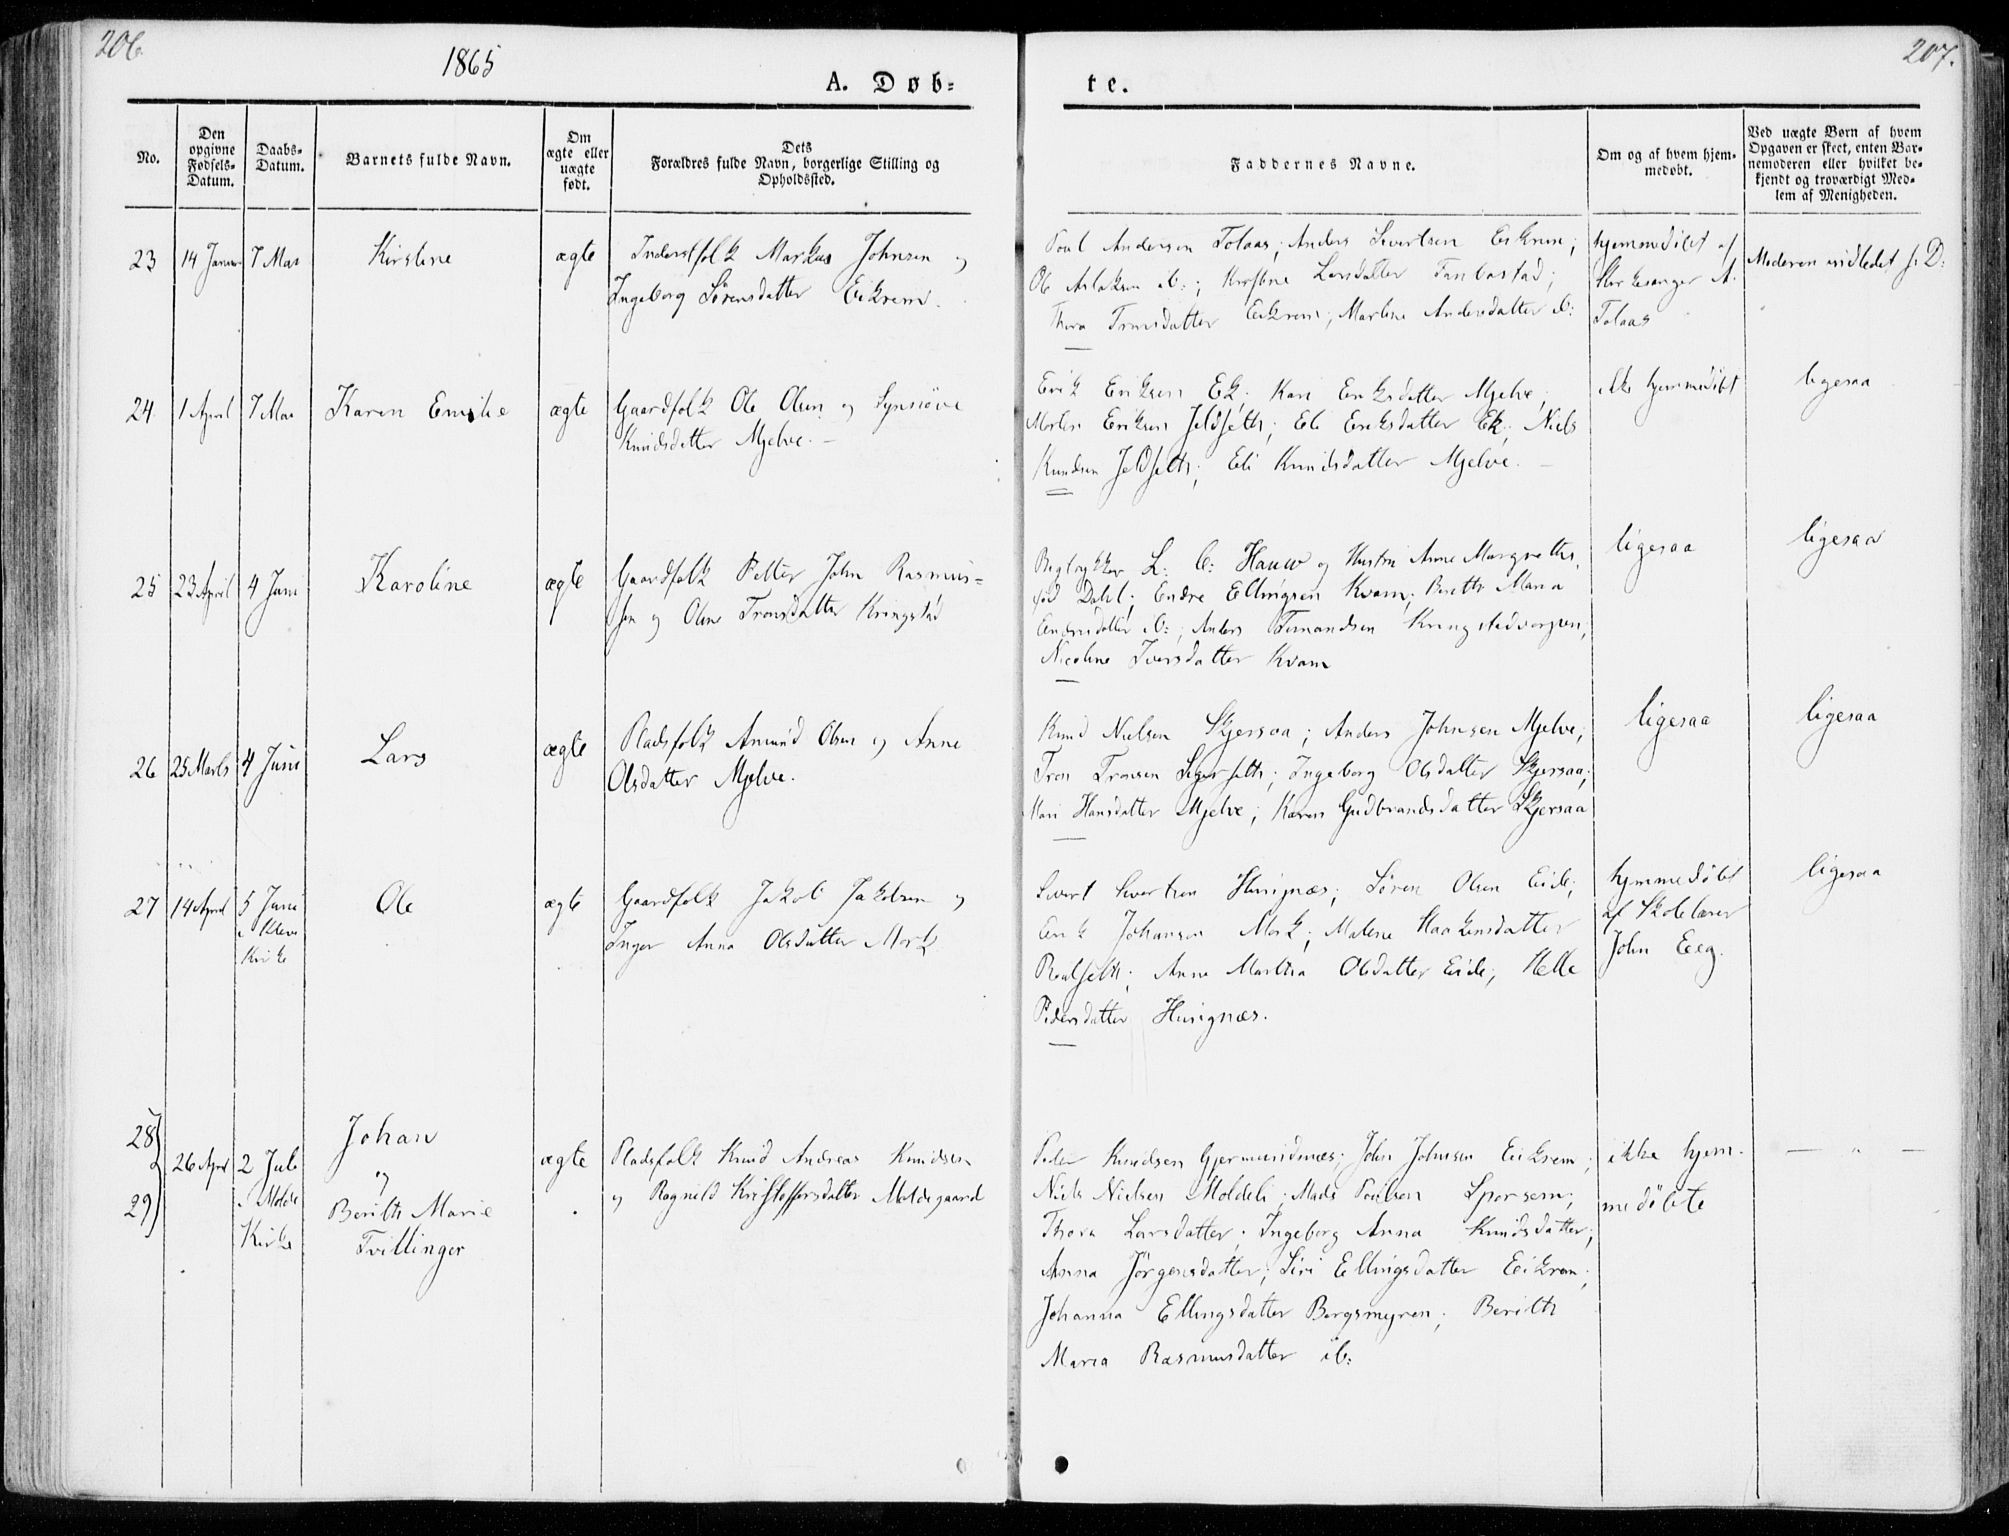 206.
1865
207.
A. Døb=
te.
No.
Den opgivne Fødsels-Datum.
Daabs-Datum.
Barnets fulde Navn.
Om ægte eller uægte født.
Dets Forældres fulde Navn, borgerlige Stilling og Opholdssted.
Faddernes Navne.
Om og af hvem hjemmedøbt.
Ved uægte Børn af hvem Opgaven er skeet, enten Barnemoderen eller hvilket bekjendt og troværdigt Medlem af Menigheden.
23
14 Januar
7 Mai
Kirstine
ægte
Inderstfolk Markus Johnsen og
Ingeborg Sørensdatter Eikrem.
Poul Andersen Tolaas; Anders Sivertsen Eikrem;
Ole Aslaksen ib:; Kirstine Larsdatter Fanbostad;
Thora Tronsdatter Eikrem; Marlene Andersdatter ib:
hjemmedöbt af
Kirkesanger A.
Tolaas
Moderen indledet s. D:
24
1 April
7 Mai
Karen Emilie
ægte
Gaardfolk Ole Olsen og Synnöve
Knudsdatter Mjelve.
Erik Eriksen Ek; Kari Eriksdatter Mjelve;
Morten Eriksen Jeldseth; Eli Eriksdatter Ek; Niels
Knudsen Jeldseth; Eli Knudsdatter Mjelve.
ikke hjemmedöbt
ligesaa
25
23 April
4 Juni
Karoline
ægte
Gaardfolk Petter John Rasmus=
sen og Oline Tronsdatter Kringstad
L. C: Hauw og Hustru Anne Margrethe,
föd Dahl; Endre Ellingsen Kvam; Berethe Maria
Endresdatter ib:; Anders Kringstadvorpen;
Nicoline Iversdatter Kvam
ligesaa
ligesaa
26
25 Marts
4 Juni
Lars
ægte
Pladsfolk Amund Olsen og Anne
Olsdatter Mjelve.
Knud Nielsen Skjersaa; Anders Johnsen Mjelve;
Tron Tronsen Sigerseth; Ingeborg Olsdatter Skjersaa;
Mari Hansdatter Mjelve; Karen Gudbrandsdatter Skjersaa
ligesaa
ligesaa
27
14 April
5 Juni
i Kleve
Kirke
Ole
ægte
Gaardfolk Jakob Jakobsen og
Inger Anna Olsdatter Mork
Sivert Sivertsen Husignæs; Sören Olsen Eide;
Erik Johansen Mork; Malene Haakensdatter
Roalseth; Anne Martha Olsdatter Eide; Helle
Pedersdatter Husignæs.
hjemmedöbt
af Skolelærer
John Eeg.
ligesaa
28
29
26 April
2 Juli
i Molde
Kirke
Johan
og
Berith Marie
Tvillinger
ægte
Pladsfolk Knud Andreas Knudsen
og Ragnild Kristoffersdatter Moldegaard
Peder Knudsen Gjermundnæs; John Johnsen Eikrem;
Niels Nielsen Moldeli; Mads Poulsen Sporsem;
Thora Larsdatter; Ingeborg Anna Knudsdatter;
Anna Jörgensdatter; Siri Ellingsdatter Eikrem;
Johanna Ellingsdatter Bergsmyren; Berith
Maria Rasmusdatter ib:
ikke hjem-
medöbte
— " —